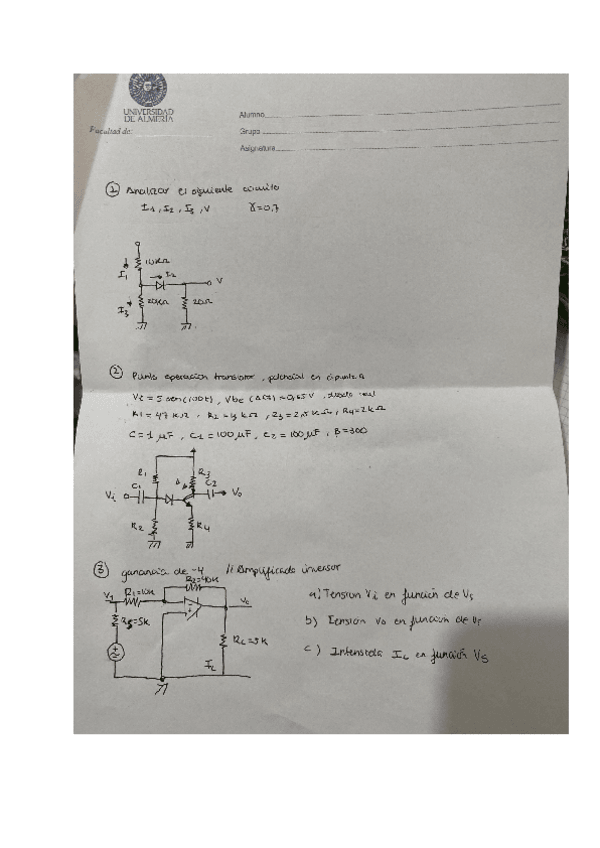 UNIVERSIDAD
DE ALMERÍA
Facultad de:
Alumno
Grupo
Asignatura
① Analizar el siguiente circuito
I1, I2, I3, V γ=0,7
10KΩ
I1 I2
V
I3 20KΩ 20Ω
② Punto operacion transistor, potencial en
Vi = 5 sen(100t), Vbe (Act) = 0,65V,
R1 = 47 KΩ, R2 = 4 KΩ, R3 = 2,5 KΩ, R4 = 2KΩ
C = 1 μF, C1 = 100 μF, C2 = 100 μF, B = 300
R1 R3
C1 C2
Vi Vo
R2 R4
③ ganancia de -4 // Amplificado inversor
R2=40K
R1=10K
RS=5K
RL=5K
IL
a) Tension Vi en función de Vs
b) Tension Vo en función de Vs
c) Intensidad IL en función Vs